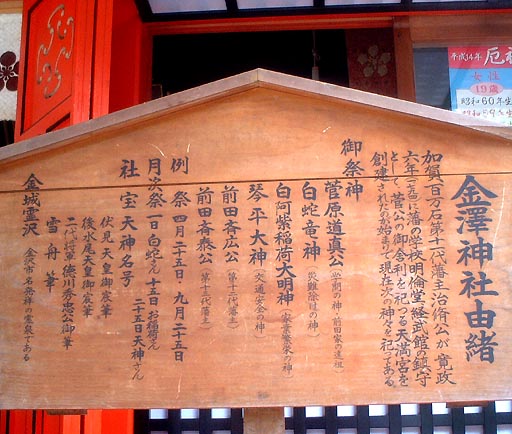 金澤神社由緒
加賀百万石第十一代藩主治脩公が寛政
六年に藩の学校明倫堂経武館の鎮守
として、菅公の御舎利を祀つる天満宮を
創建されたのが始まりで現在次の神々を祀つてある
御祭神
菅原道真公(学問の神・前田家の遠祖)
白蛇竜神(災難除けの神)
白阿紫稲荷大明神(家業繁栄の神)
琴平大神(交通安全の神)
前田斉広公(第十二代藩主)
前田斉泰公(第十三代藩主)
例祭 四月二十五日・九月二十五日
月次祭 一日白蛇さん 十五日お稲荷さん
二十五日天神さん
社宝 天神名号
伏見天皇御宸筆
後水尾天皇御宸筆
二代将軍徳川秀忠公御筆
雪舟筆
金城霊沢 金沢市名発祥の霊泉である
平成14年 厄祓
女性
19歳
昭和60年生
昭和59年生